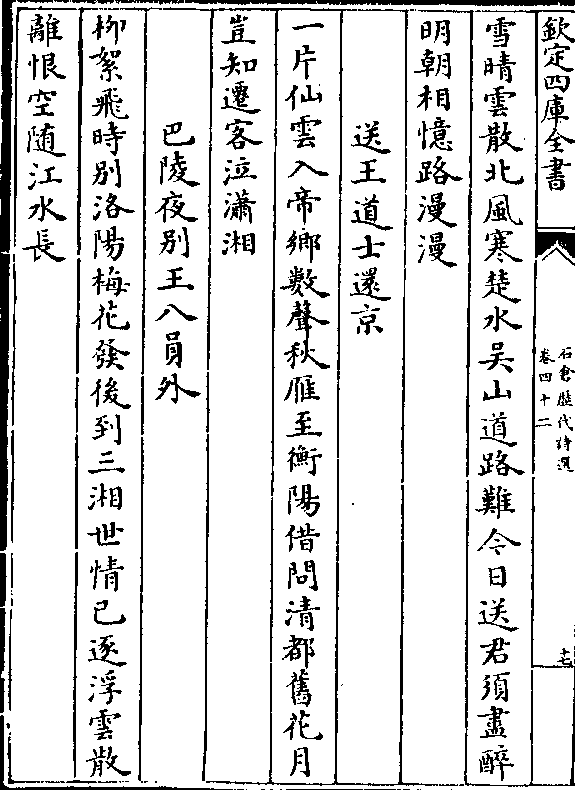 欽定四庫全書
石倉歷代詩選
卷四十二
十七
雪晴雲散北風寒楚水吳山道路難今日送君須盡醉
明朝相憶路漫漫
送王道士還京
一片仙雲入帝鄉數聲秋雁至衡陽借問清都舊花月
豈知遷客泣瀟湘
巴陵夜别王八員外
柳絮飛時别洛陽梅花發後到三湘世情已逐浮雲散
離恨空随江水長